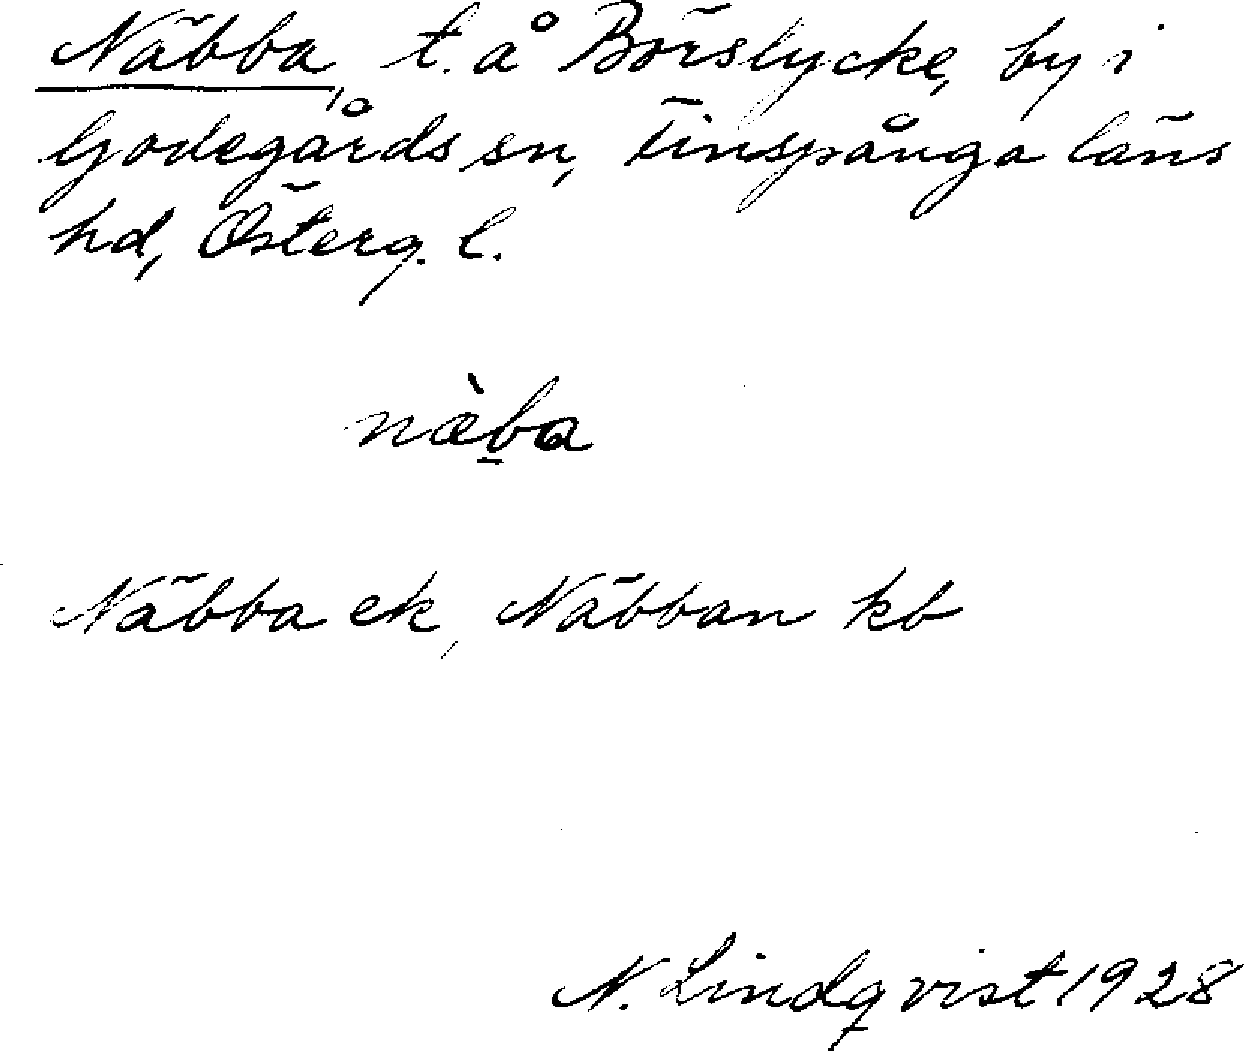 Näbba, t. å Börslycke, by i
Godegårds sn, Finspånga läns
hd, Österg. l.
næ̀b̠a
Näbba ek, Näbban kb
N. Lindqvist 1928